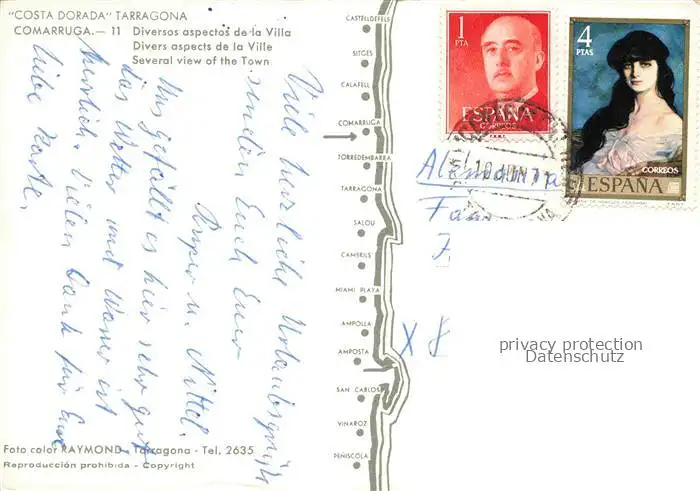 "COSTA DORADA" TARRAGONA
COMARRUGA.— 11 Diversos aspectos de la Villa
Divers aspects de la Ville
Several view of the Town
Viele herzliche Urlaubsgrüße
senden Euch Eure
u.
Uns gefällt es hier sehr gut
das Wetter und Wasser ist
herrlich. Vielen Dank für Eure
liebe Karte.
Foto color RAYMOND - Tarragona - Tel. 2635
Reproducción prohibida - Copyright
CASTELLDEFELS
SITGES
CALAFELL
COMARRUGA
TORREDEMBARRA
TARRAGONA
SALOU
CAMBRILS
MIAMI PLAYA
AMPOLLA
AMPOSTA
SAN CARLOS
VINAROZ
PEÑISCOLA
1
PTA
ESPAÑA
CORREOS
4
PTAS
CORREOS
ESPAÑA
Alemania
X 8
privacy protection
Datenschutz